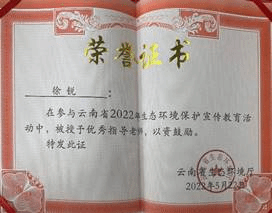 荣誉证书
徐锐：
在参与云南省2022年生态环境保护宣传教育活
动中，被授予优秀指导老师，以资鼓励。
特发此证
云南省生态环境厅
2022年5月22日